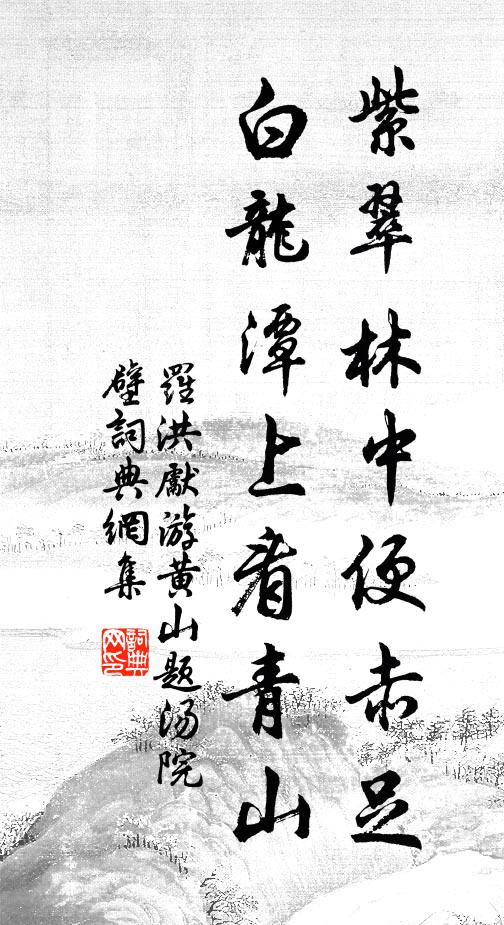 紫翠林中便赤足
白龍潭上看青山
羅洪獻游黄山題湯院
壁詞典網集
詞典
网印